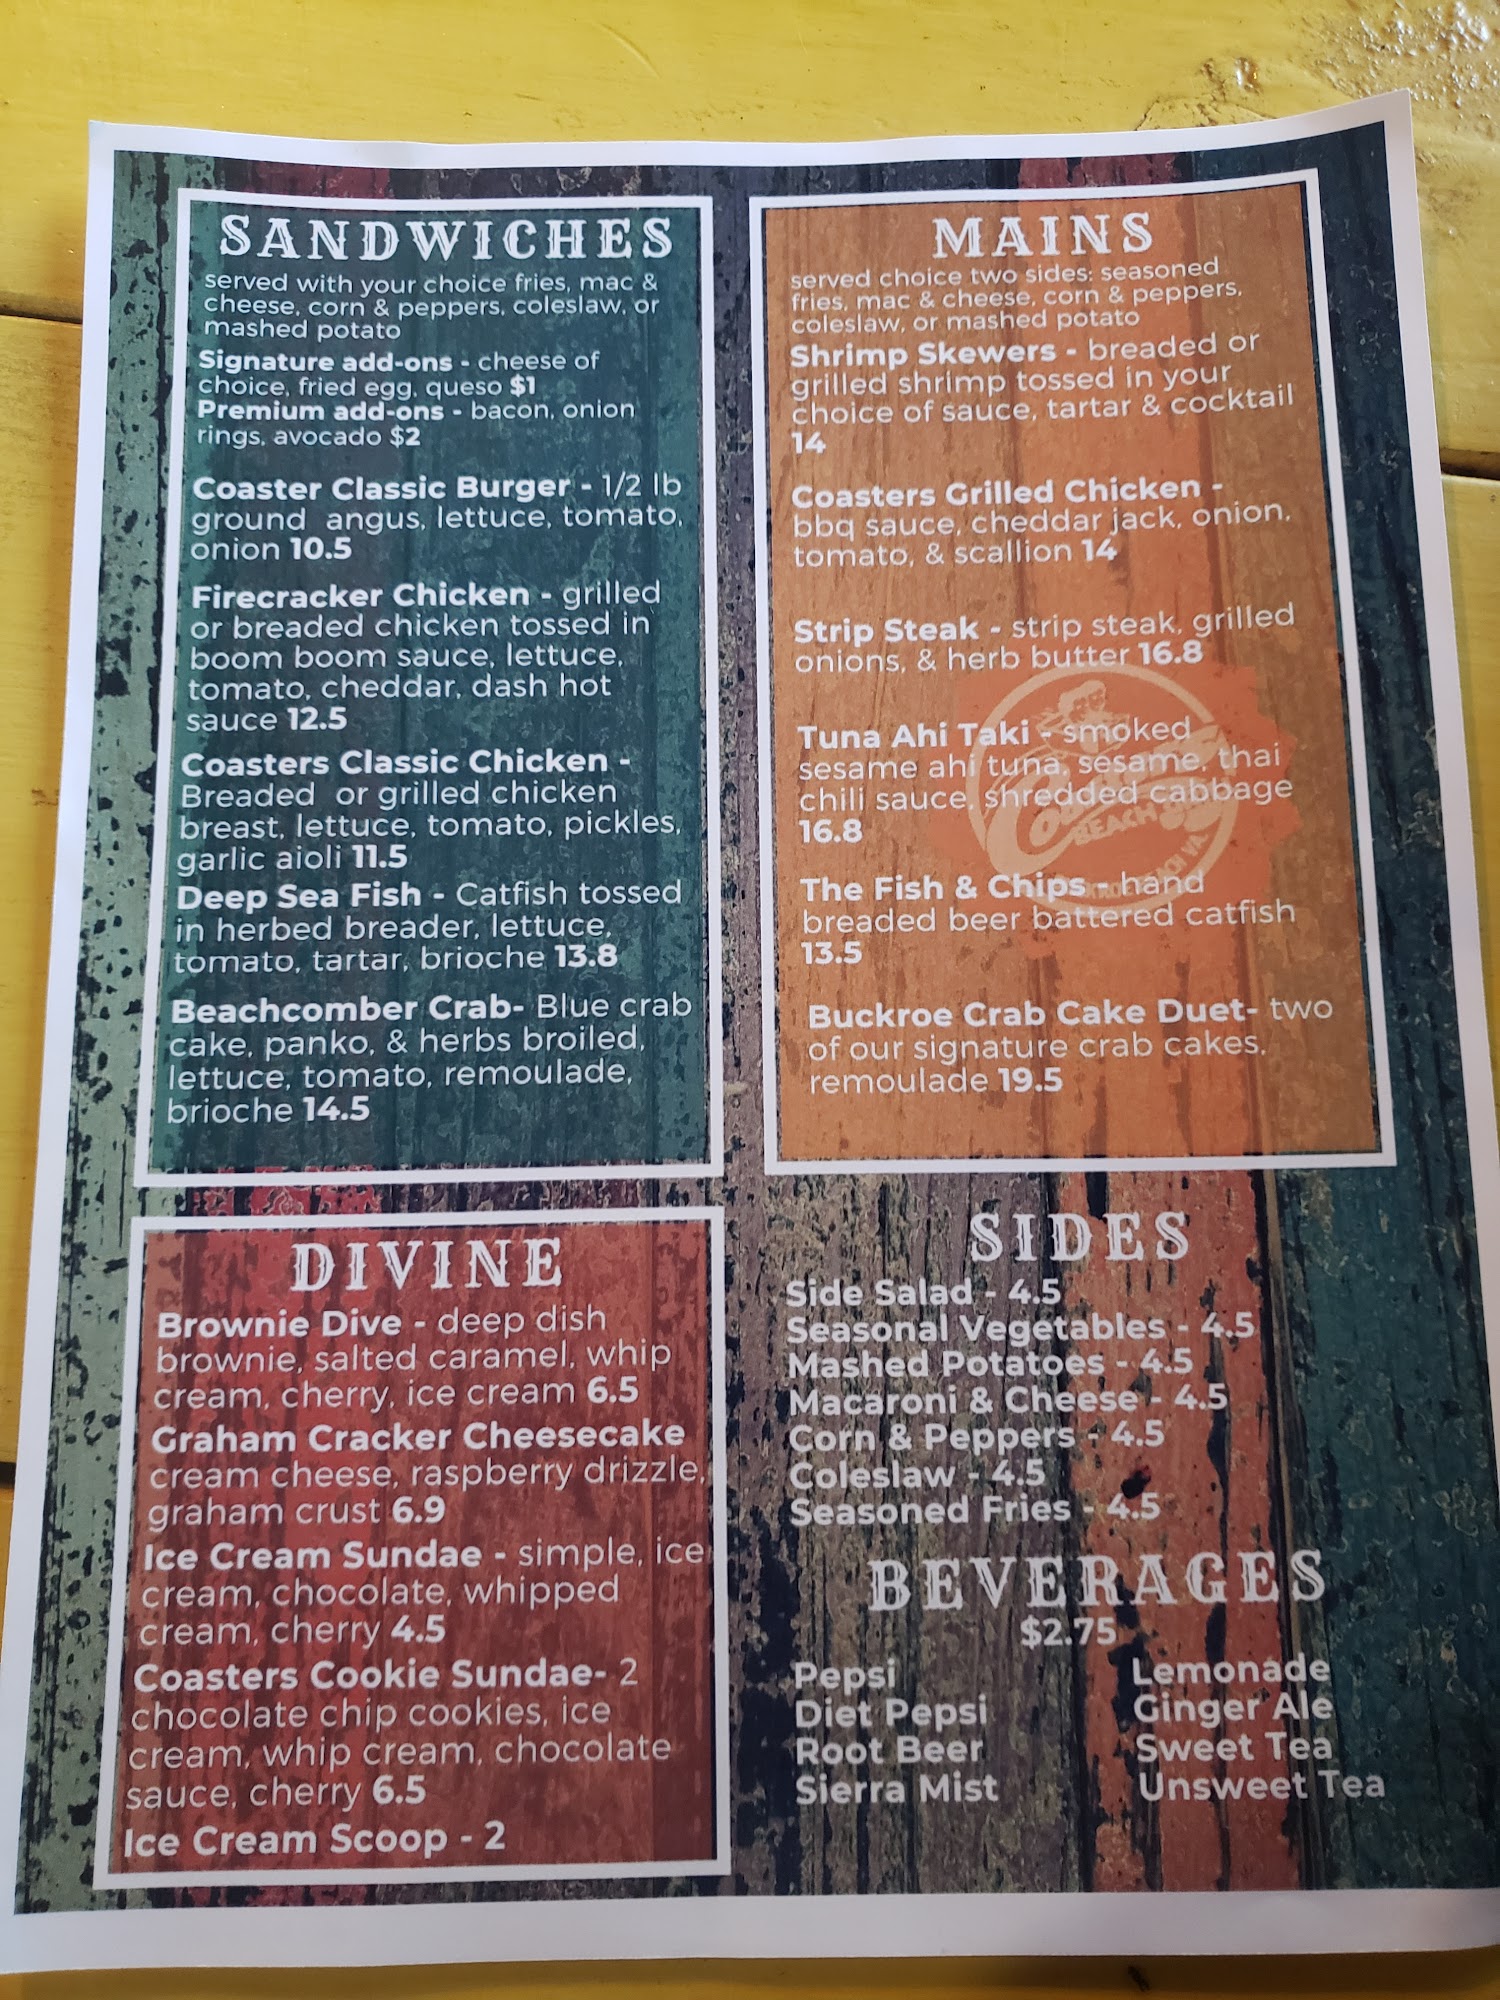 SANDWICHES
served with your choice fries, mac &
cheese, corn & peppers, coleslaw, or
mashed potato
Signature add-ons - cheese of
choice, fried egg, queso $1
Premium add-ons - bacon, onion
rings, avocado $2
Coaster Classic Burger - 1/2 lb
ground angus, lettuce, tomato,
onion 10.5
Firecracker Chicken - grilled
or breaded chicken tossed in
boom boom sauce, lettuce,
tomato, cheddar, dash hot
sauce 12.5
Coasters Classic Chicken -
Breaded or grilled chicken
breast, lettuce, tomato, pickles,
garlic aioli 11.5
Deep Sea Fish - Catfish tossed
in herbed breader, lettuce,
tomato, tartar, brioche 13.8
Beachcomber Crab- Blue crab
cake, panko, & herbs broiled,
lettuce, tomato, remoulade,
brioche 14.5
MAINS
served choice two sides: seasoned
fries, mac & cheese, corn & peppers,
coleslaw, or mashed potato
Shrimp Skewers - breaded or
grilled shrimp tossed in your
choice of sauce, tartar & cocktail
14
Coasters Grilled Chicken -
bbq sauce, cheddar jack, onion,
tomato, & scallion 14
Strip Steak - strip steak, grilled
onions, & herb butter 16.8
Tuna Ahi Taki - smoked
sesame ahi tuna, sesame, thai
chili sauce, shredded cabbage
16.8
The Fish & Chips - hand
breaded beer battered catfish
13.5
Buckroe Crab Cake Duet- two
of our signature crab cakes,
remoulade 19.5
Coasters
BEACH
DIVINE
Brownie Dive - deep dish
brownie, salted caramel, whip
cream, cherry, ice cream 6.5
Graham Cracker Cheesecake
cream cheese, raspberry drizzle,
graham crust 6.9
Ice Cream Sundae - simple, ice
cream, chocolate, whipped
cream, cherry 4.5
Coasters Cookie Sundae- 2
chocolate chip cookies, ice
cream, whip cream, chocolate
sauce, cherry 6.5
Ice Cream Scoop - 2
SIDES
Side Salad - 4.5
Seasonal Vegetables - 4.5
Mashed Potatoes - 4.5
Macaroni & Cheese - 4.5
Corn & Peppers - 4.5
Coleslaw - 4.5
Seasoned Fries - 4.5
BEVERAGES
$2.75
Pepsi
Diet Pepsi
Root Beer
Sierra Mist
Lemonade
Ginger Ale
Sweet Tea
Unsweet Tea